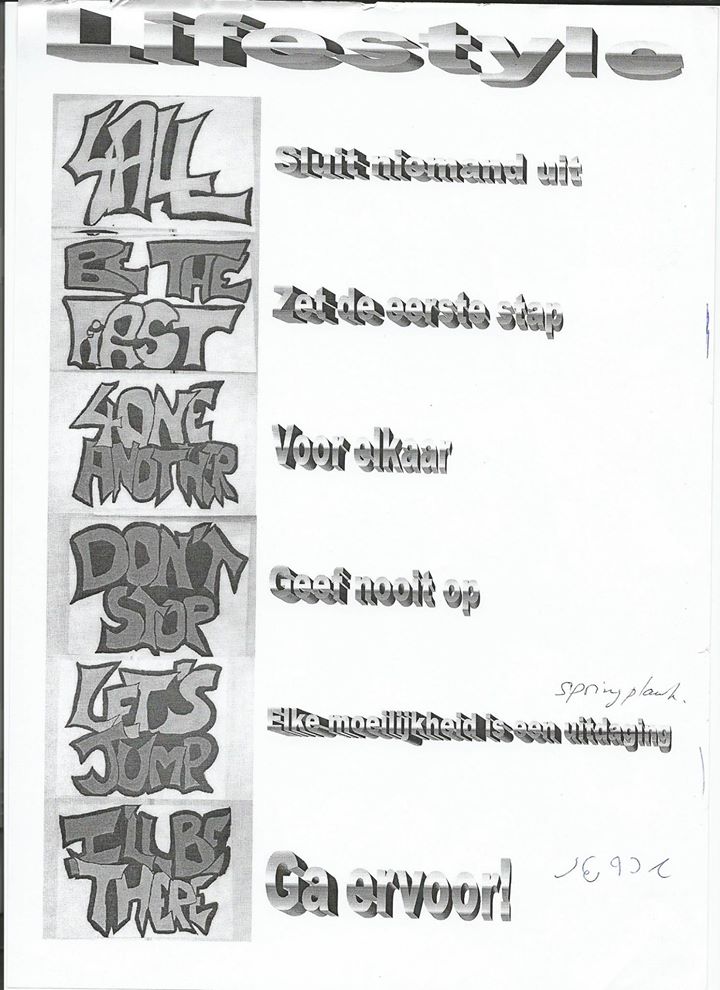 Lifestyle
4ALL
Sluit niemand uit
BE THE
FiRST
Zet de eerste stap
4ONE
ANOTHER
Voor elkaar
DON'T
STOP
Geef nooit op
LET'S
JUMP
springplank.
Elke moeilijkheid is een uitdaging
I'LL BE
THERE
Ga ervoor!